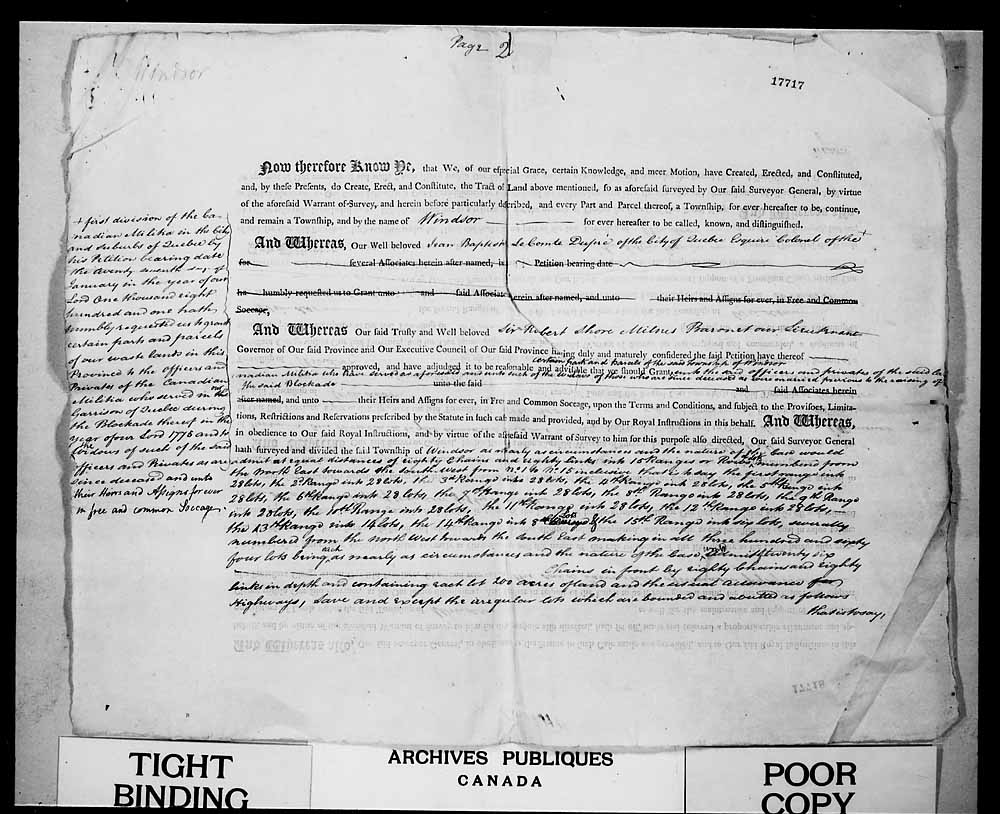 Page 2
17717
Windsor
Now therefore Know Ye, that We, of our eſpecial Grace, certain Knowledge, and meer Motion, have Created, Erected, and Conſtituted,
and, by theſe Preſents, do Create, Erect, and Conſtitute, the Tract of Land above mentioned, ſo as aforeſaid ſurveyed by Our ſaid Surveyor General, by virtue
of the aforeſaid Warrant of Survey, and herein before particularly deſcribed, and every Part and Parcel thereof, a Townſhip, for ever hereafter to be, continue,
and remain a Townſhip, and by the name of Windsor for ever hereafter to be called, known, and diſtinguiſhed.
And Whereas, Our Well beloved Jean Baptiste Le Comte Dupré of the City of Quebec Esquire Colonel of the +
+ first division of the Ca-
nadian Militia in the City
and suburbs of Quebec by
his Petition bearing date
the twenty seventh day of
January in the year of our
Lord One thousand eight
hundred and one hath
humbly requested us to grant
certain parts and parcels
of our waste lands in this
Province to the officers and
Privates of the Canadian
Militia who served in the
Garrison of Quebec during
the Blockade thereof in the
year of our Lord 1775 and to
the widows of such of the said
officers and Privates as are
since deceased and unto
their Heirs and Assigns for ever
in free and common Soccage.
for several Aſſociates herein after named, Petition bearing date
ha humbly requeſted us to Grant unto and ſaid Aſſociates herein after named, and unto their Heirs and Aſſigns for ever, in Free and Common
Soccage,
And Whereas Our ſaid Truſty and Well beloved Sir Robert Shore Milnes Baronet our Lieutenant
Governor of Our ſaid Province and Our Executive Council of Our ſaid Province having duly and maturely conſidered the ſaid Petition have thereof
certain parts and parcels of the said Township of Windsor
approved, and have adjudged it to be reaſonable and adviſable that we ſhould Grant unto the said officers and privates of the said Ca-
nadian Militia who have served as aforesaid and unto such of the widows of those who are since deceased as were married previous to the raising of
the said Blockade unto the ſaid and ſaid Aſſociates herein
after named, and unto their Heirs and Aſſigns for ever, in Free and Common Soccage, upon the Terms and Conditions, and ſubject to the Proviſoes, Limita-
tions, Reſtrictions and Reſervations preſcribed by the Statute in ſuch caſe made and provided, and by Our Royal Inſtructions in this behalf. And Whereas,
in obedience to Our ſaid Royal Inſtructions, and by virtue of the aforeſaid Warrant of Survey to him for this purpoſe alſo directed, Our ſaid Surveyor General
hath ſurveyed and divided the ſaid Townſhip of Windsor as nearly as circumstances and the nature of the case would
admit at equal distances of eighty Chains and eighty links into 15 Ranges or Rows, numbered from
the North East towards the South West from No. 1 to No. 15 inclusive that is to say the first range into
28 lots, the 2d Range into 28 lots, the 3d Range into 28 lots, the 4th Range into 28 lots, the 5th Range into
28 lots, the 6th Range into 28 lots, the 7th Range into 28 lots, the 8th Range into 28 lots, the 9th Range
into 28 lots, the 10th Range into 28 lots, the 11th Range into 28 lots, the 12th Range into 28 lots,
the 13th Range into 14 lots, the 14th Range into 8 lots & the 15th Range into six lots, severally
numbered from the North West towards the South East making in all three hundred and sixty
four lots being each as nearly as circumstances and the nature of the case would admit twenty six
Chains in front by eighty Chains and eighty
links in depth and containing each lot 200 acres of land and the usual allowance for
Highways, save and except the irregular lots which are bounded and abuted as follows
that is to say,
TIGHT
BINDING
ARCHIVES PUBLIQUES
CANADA
POOR
COPY